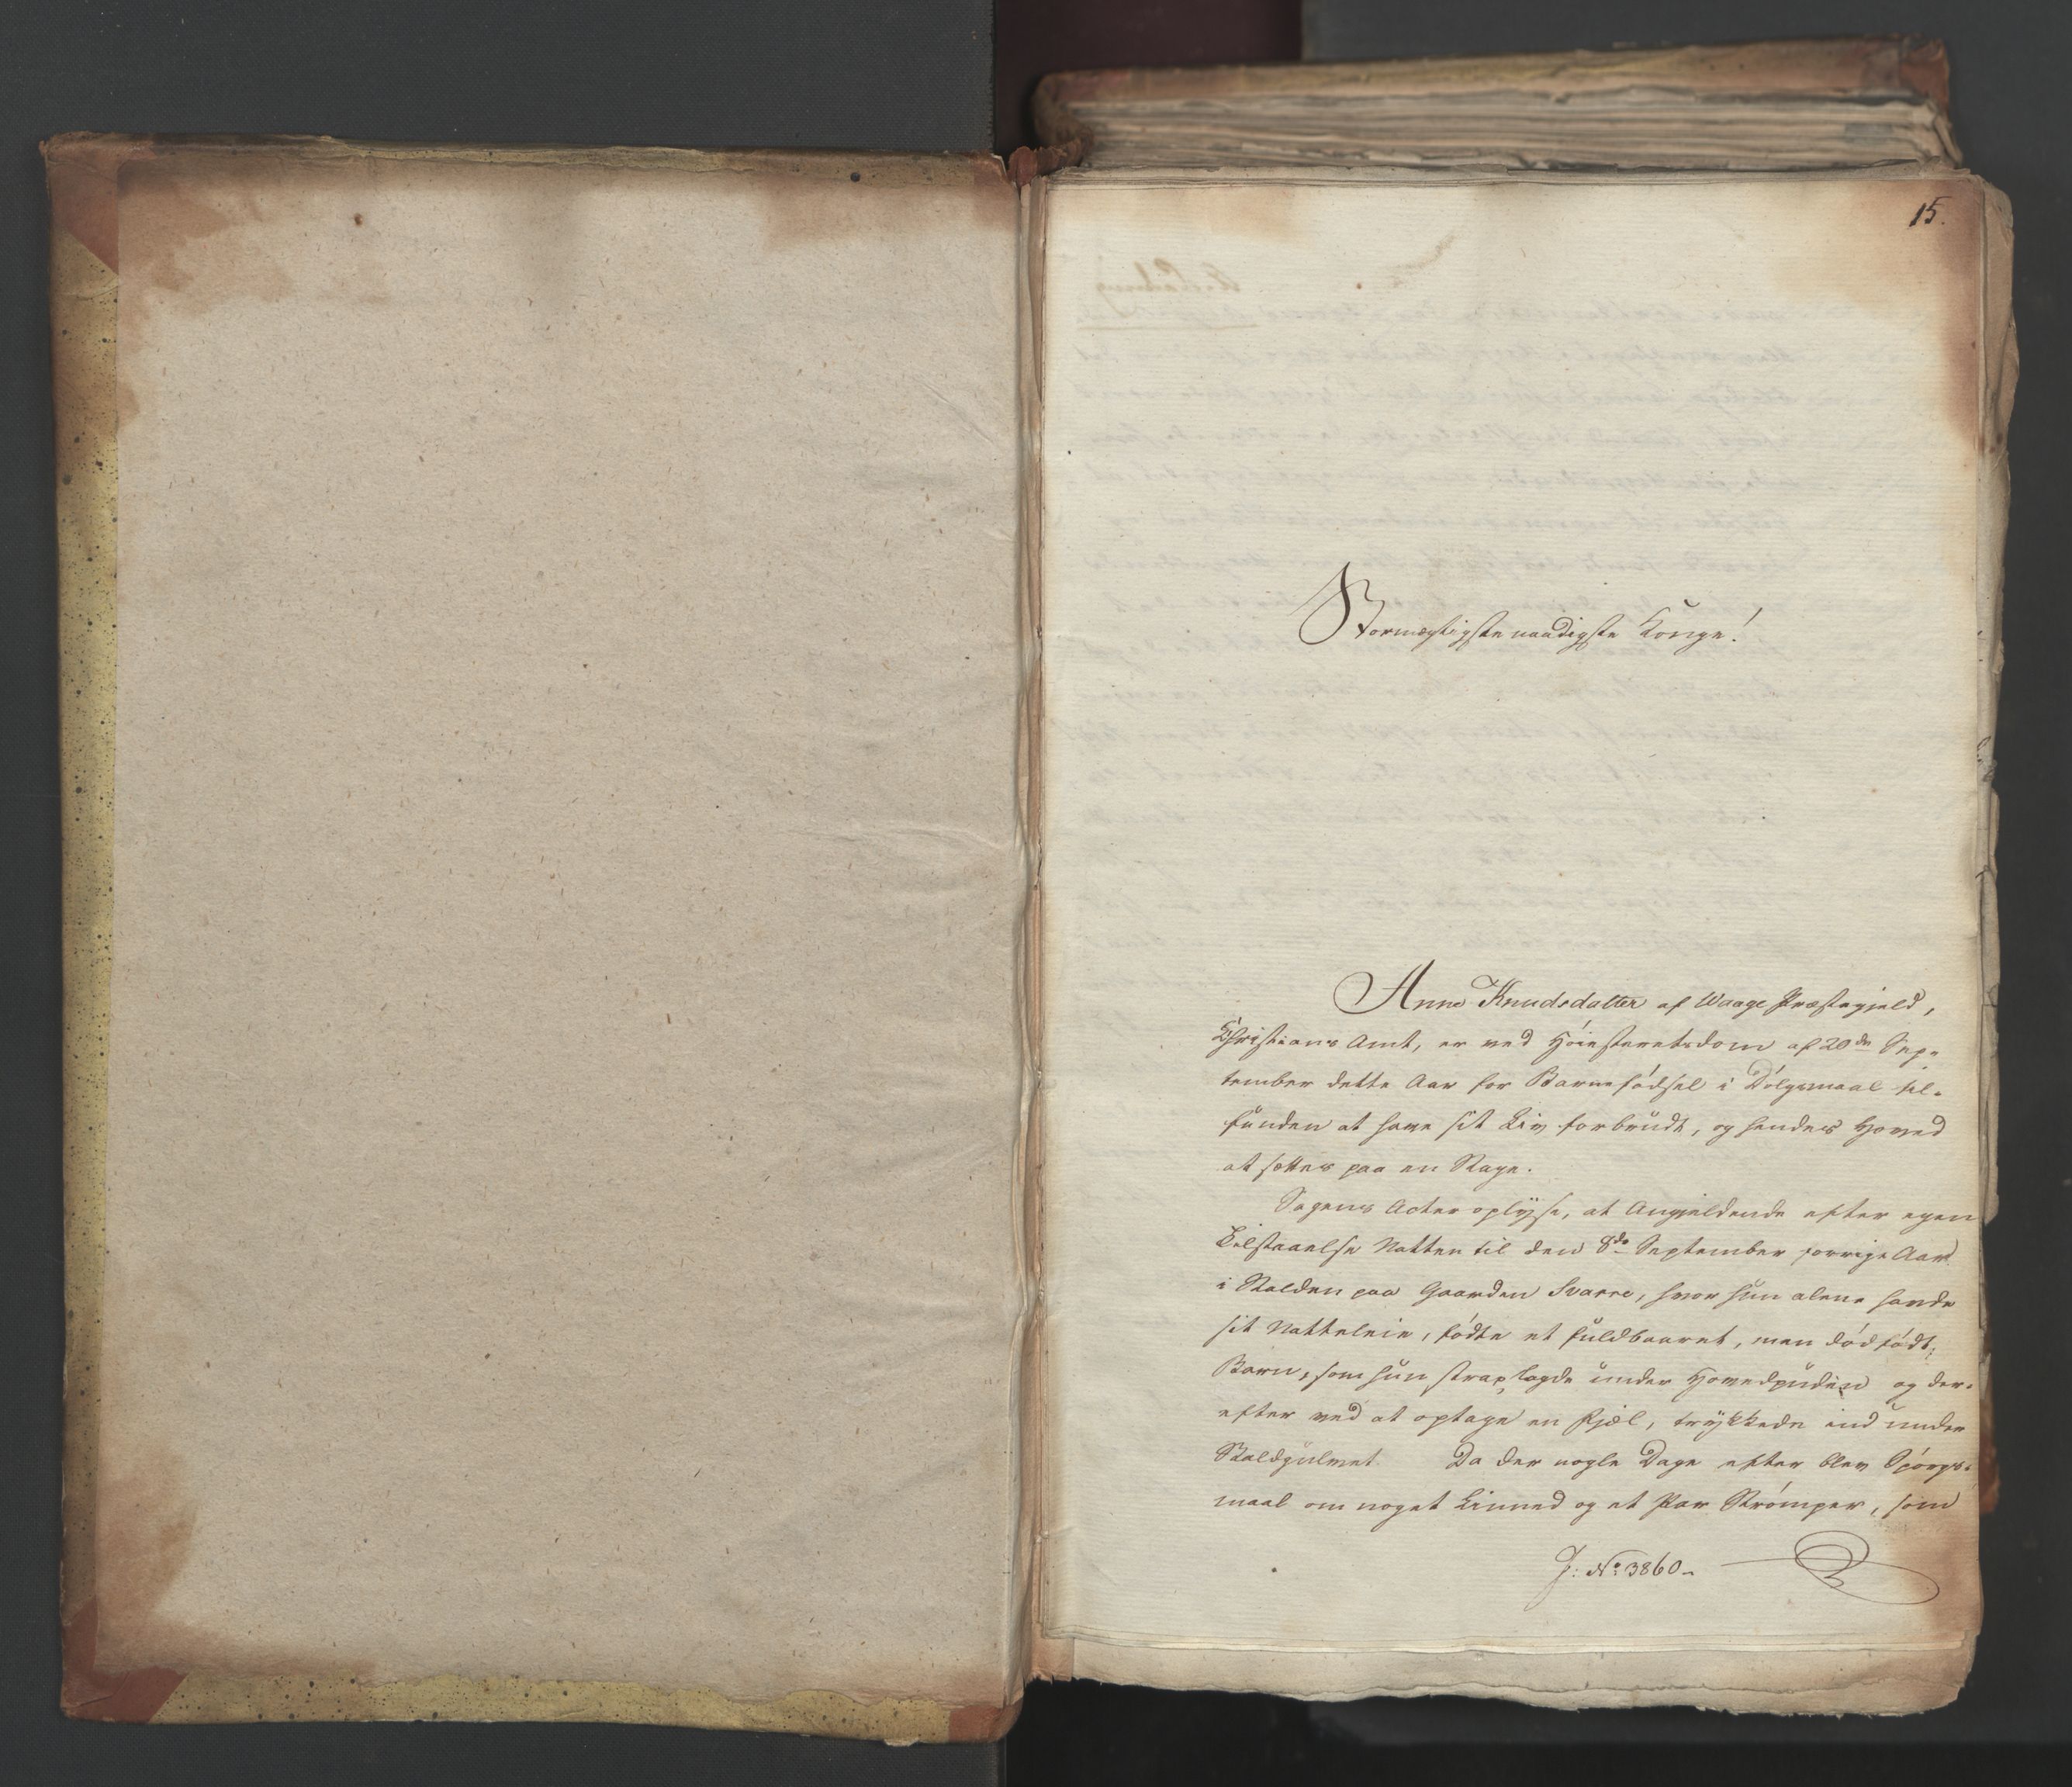 15.
Stormægtigste naadigste Konge!
Anne Knudsdatter af Waage Præstegjeld,
Christians Amt, er ved Høiesteretsdom af 20de Sep-
tember dette Aar for Barnefødsel i Dølgsmaal til-
funden at have sit Liv forbrudt, og hendes Hoved
at sættes paa en Stage.
Sagens Acter oplyse, at Angjeldende efter egen
Tilstaaelse Natten til den 8de September forrige Aar
i Stalden paa Gaarden Svarre, hvor hun alene havde
sit Natteleie, fødte et fuldbaaret, men dødfødt
Barn, som hun strax lagde under Hovedpuden og der-
efter ved at optage en Fjæl, trykkede ind under
Staldgulvet. Da der nogle Dage efter blev Spørgs-
maal om noget Linned og et Par Strømper, som
J: No 3860